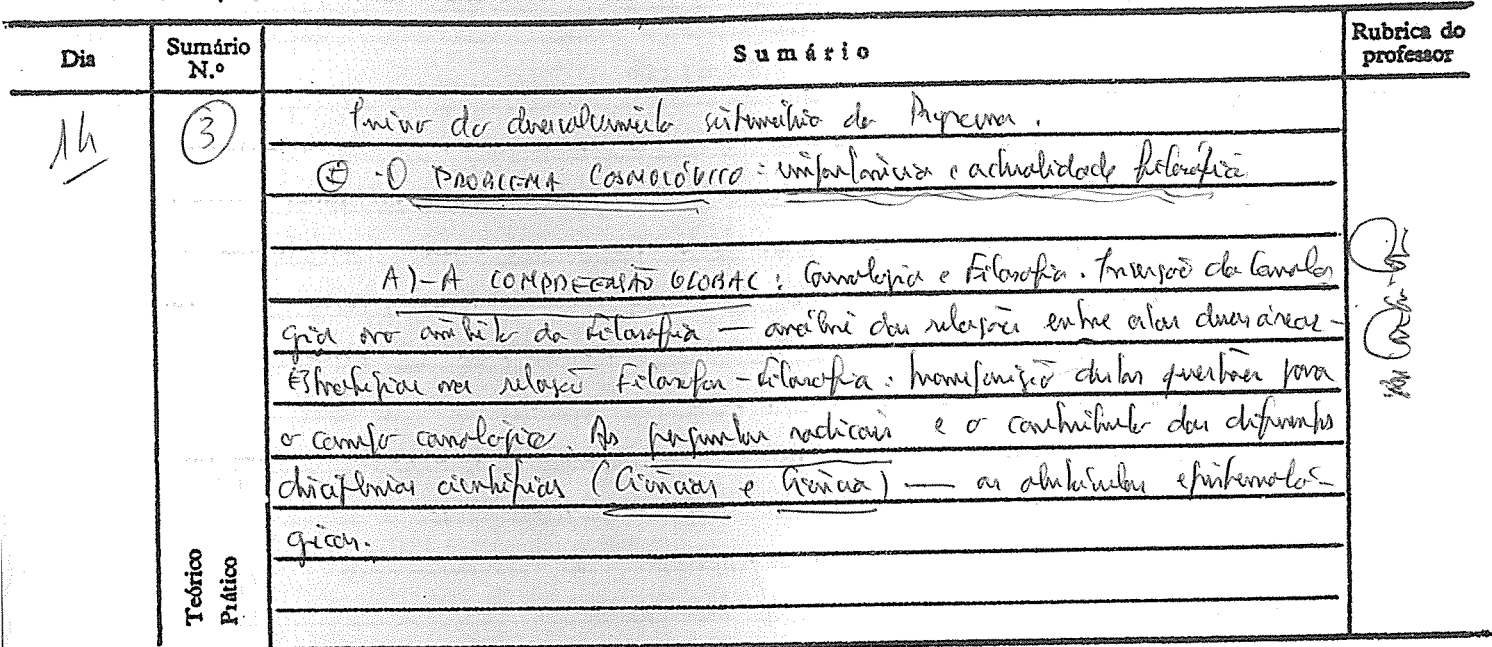 Dia
Sumário N.º
Sumário
Rubrica do professor
14
3
Início do desenvolvimento sistemático do Programa.
- O PROBLEMA COSMOLÓGICO: importância e actualidade filosófica
A) - A COMPREENSÃO GLOBAL: Cosmologia e Filosofia. Inserção da Cosmolo
gia no âmbito da Filosofia — análise das relações entre estas duas áreas -
Estratégias na relação Filosofia - Filosofia: transposição destas questões para
o campo cosmológico. As perguntas radicais e o contributo das diferentes
disciplinas científicas (Ciências e Ciência) — os obstáculos epistemoló-
gicos.
Teórico
Prático